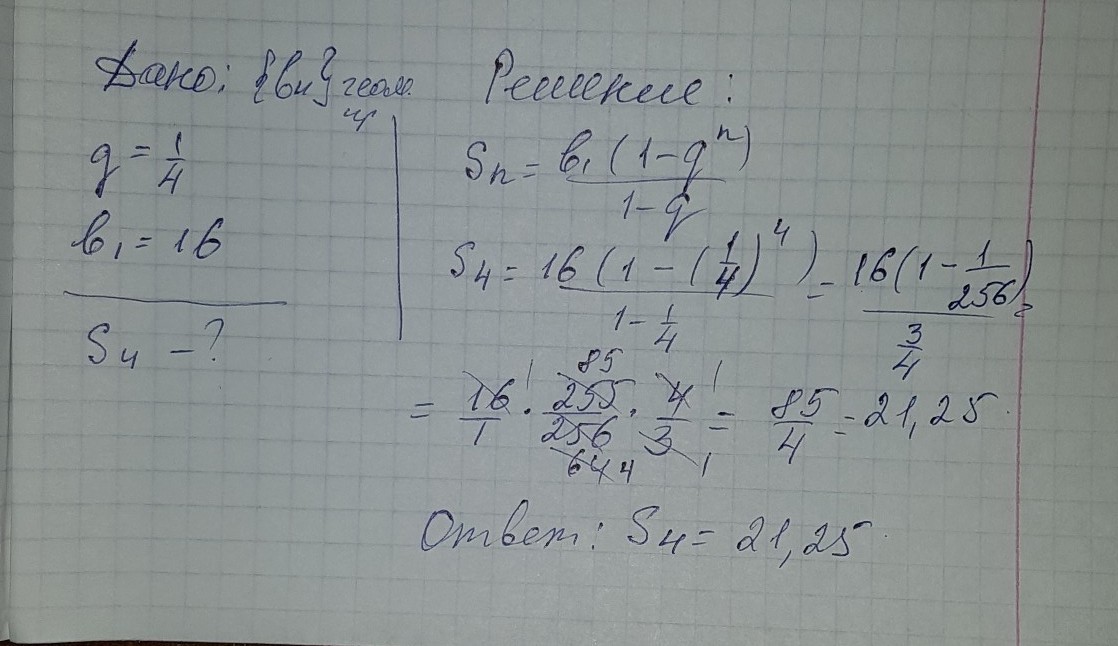 Дано: {bn} геом. пр
q = 1/4
b₁ = 16
S₄ – ?
Решение:
Sn = b₁(1-qⁿ)/1-q
S₄ = 16(1-(1/4)⁴)/1-1/4 = 16(1-1/256)/3/4 =
= 16/1 · 255/256 · 4/3 = 85/4 = 21,25
1 85 64 4 1 1
Ответ: S₄ = 21,25.